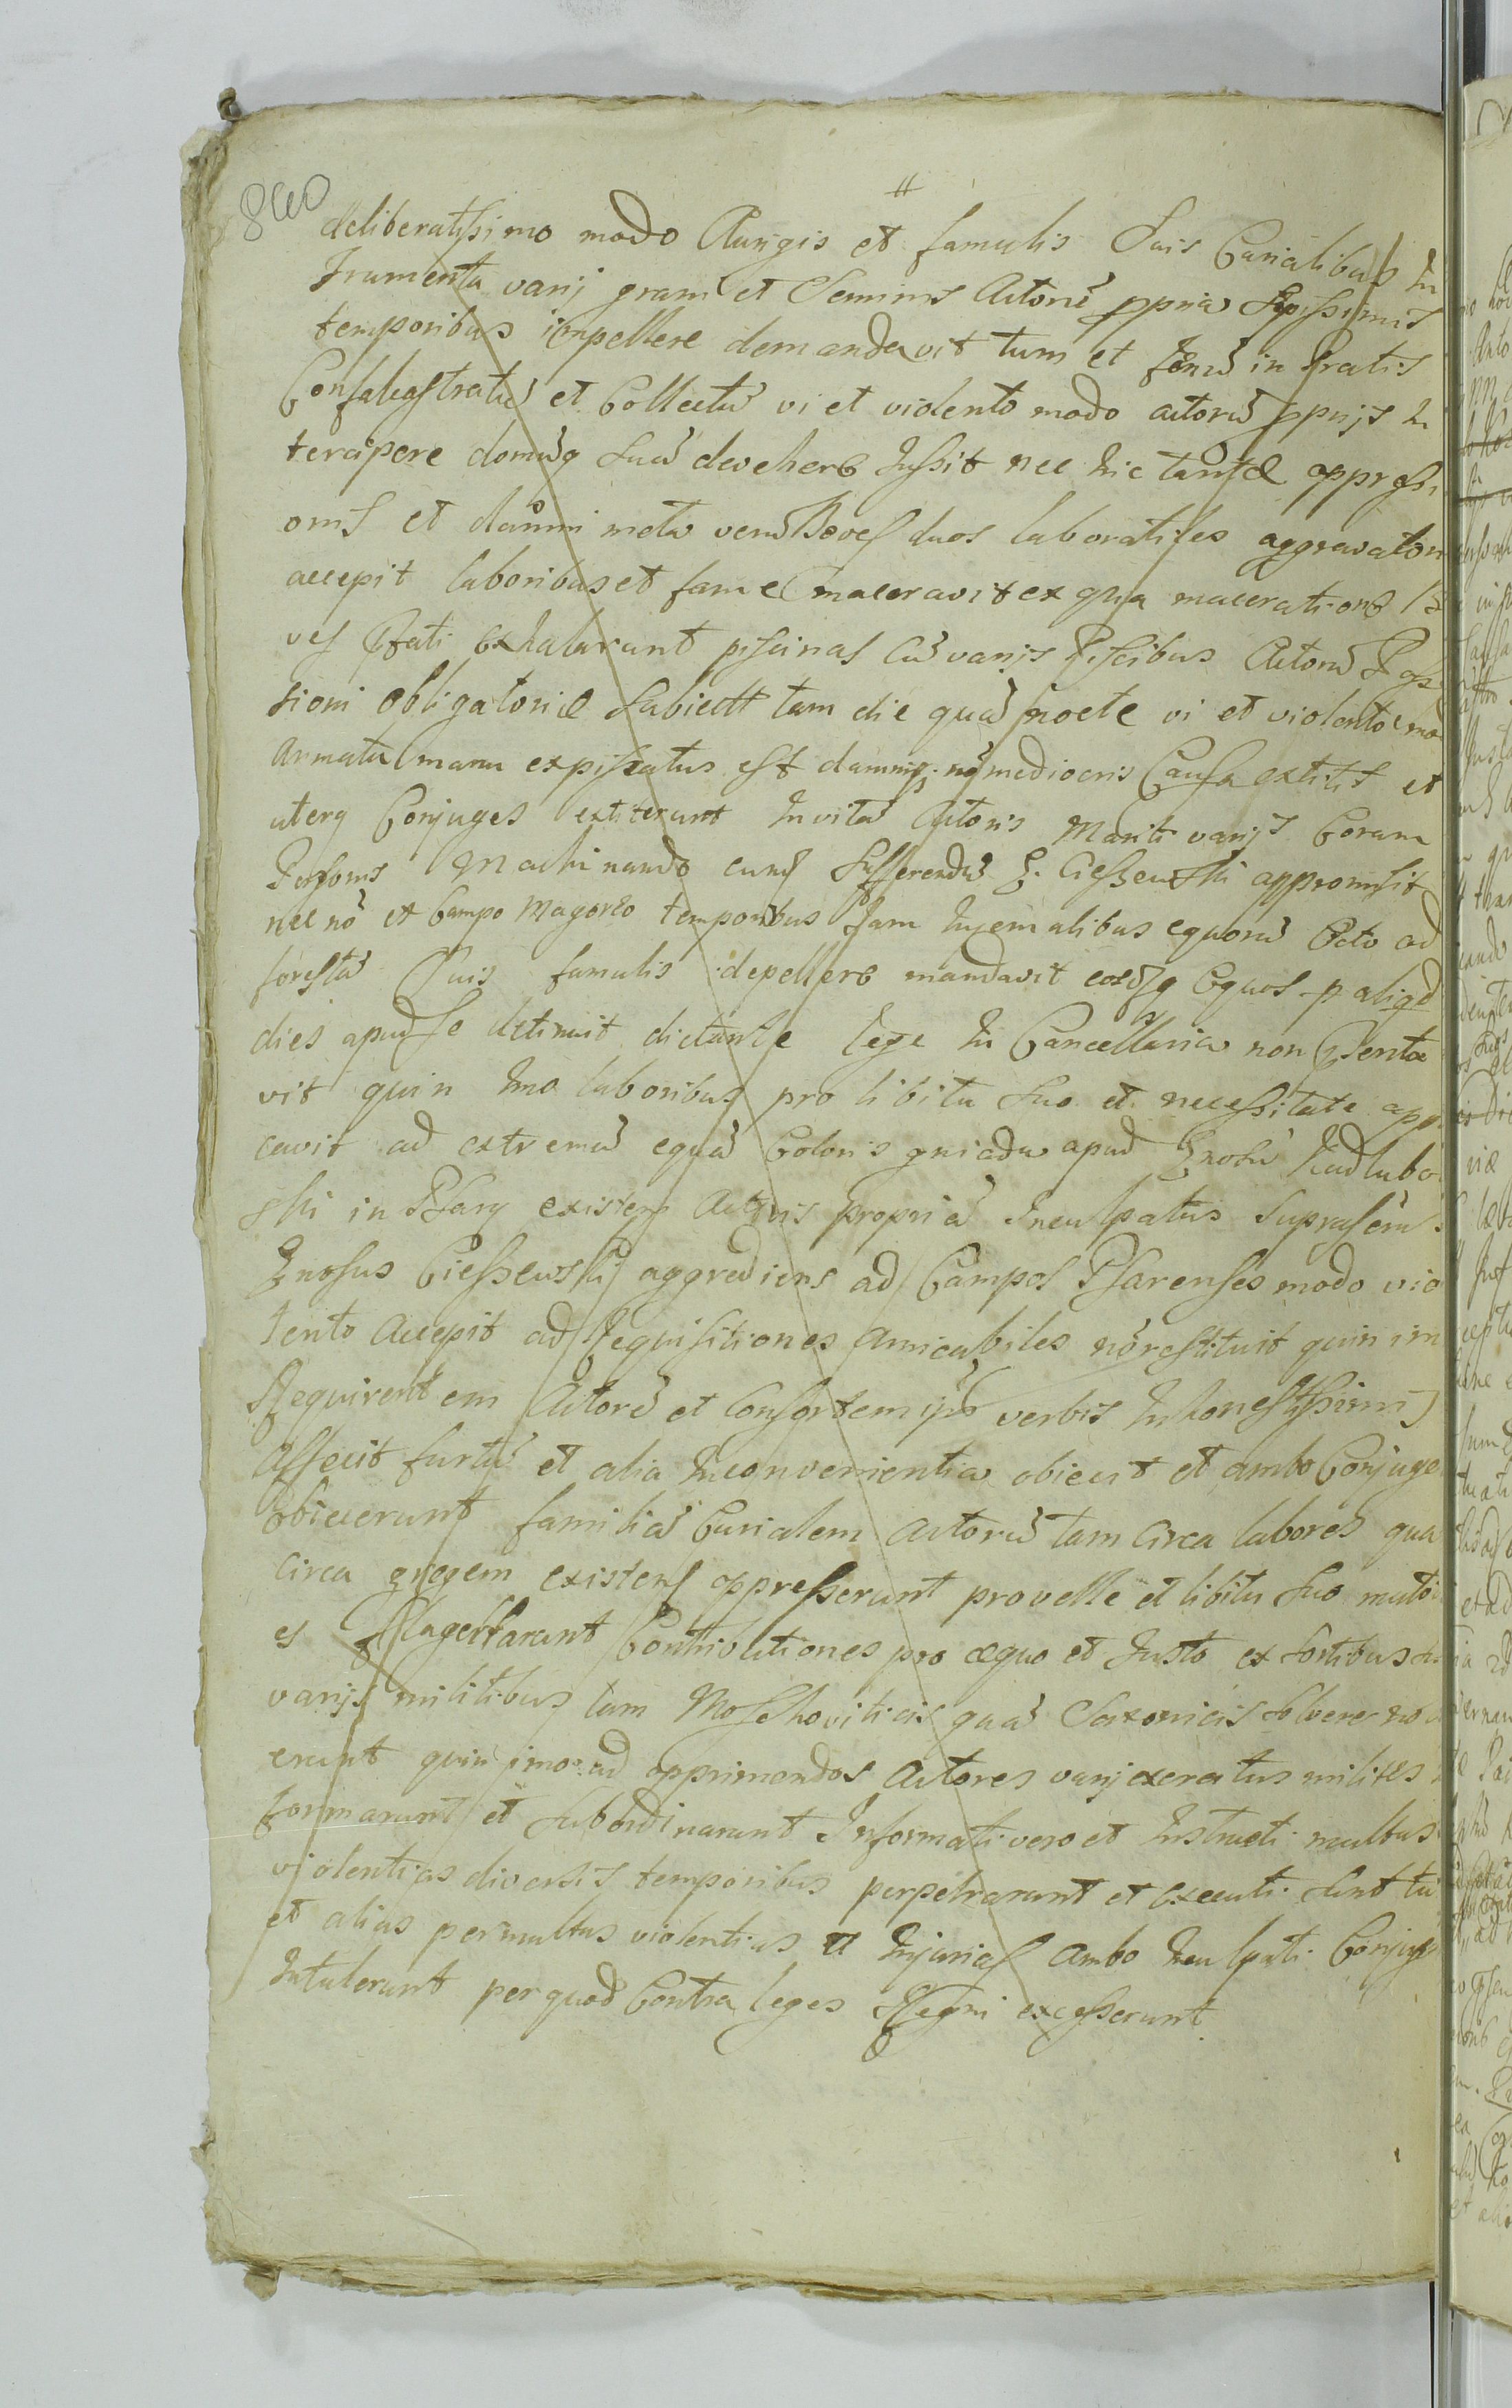 840
deliberatissimo modo Aurigis et famulis Suis Curialibus In
frumenta varij grani et Seminis Actorũ ppria Sepissimis
temporibus impellere demandavit tum et fenũ in Pratis
Confalcastratũ et Collectũ vi et violento modo actorũ pprijs in
tercipere domũq suã devehere Jussit nec hic tantæ oppressi
onis et damni meta verũ Boves duos laboratiles aggravatori
accepit laboribus et fame maceravit ex qua maceratione Bo
ves Pfati exhalarunt piscinas cũ varijs Piscibus Actorũ Posse
sioni obligatoriæ Subiectas tam die quã nocte vi et violento mo
Armata manu expiscatus est damniq; nõ mediocris Causa extitit et
uterq Conjuges extiterunt In vitã Actoris Mariti varijs Coram
Personis Machinando eund Sufferendũ G. Ciessewski appromisit
nec nõ et Campo Magorso temporibus Jam hyemalibus equorũ Octo ad
forestã Suis famulis depellere mandavit eosdq Equos p aliqd
dies apud se detinuit dictante lege In Cancellaria non Psenta
vit quin Imo laboribus pro libitu suo et necessitate appl
cavit ad extremũ equã Coloris gniada apud Gnosũ Kadlubo
ski in Psary existen Actoris propriã Inculpatus Suprasem
Gnosus Ciessewski aggrediens ad Campos Psarenses modo vio
lento Accepit ad Requisitiones amicabiles nõ restituit quin im
Requirentem Actorẽ et Consortem ips verbis Inhonestissimis
Affecit furtũ et alia Inconvenientia obiecit et ambo Conjuge
Obiecerunt familiã Curialem actorũ tam circa labores qua
circa gregem existen oppresserunt pro velle et libitu suo multoti
es flagellarunt Contributiones pro æquo et Justo ex sortibus
varijs militibus tam Moschoviticis quã Saxonicis solvere no
erunt quin imo ad opprimendos Actores varij exercitus milites
formarunt et subordinarunt Informati vero et Instructi multas
violentias diversis temporibus perpetrarunt et executi sunt tũ
et alias permultas violentias et Injurias ambo Inculpati Conjuge
Intulerunt per quod Contra leges Regni excesserunt